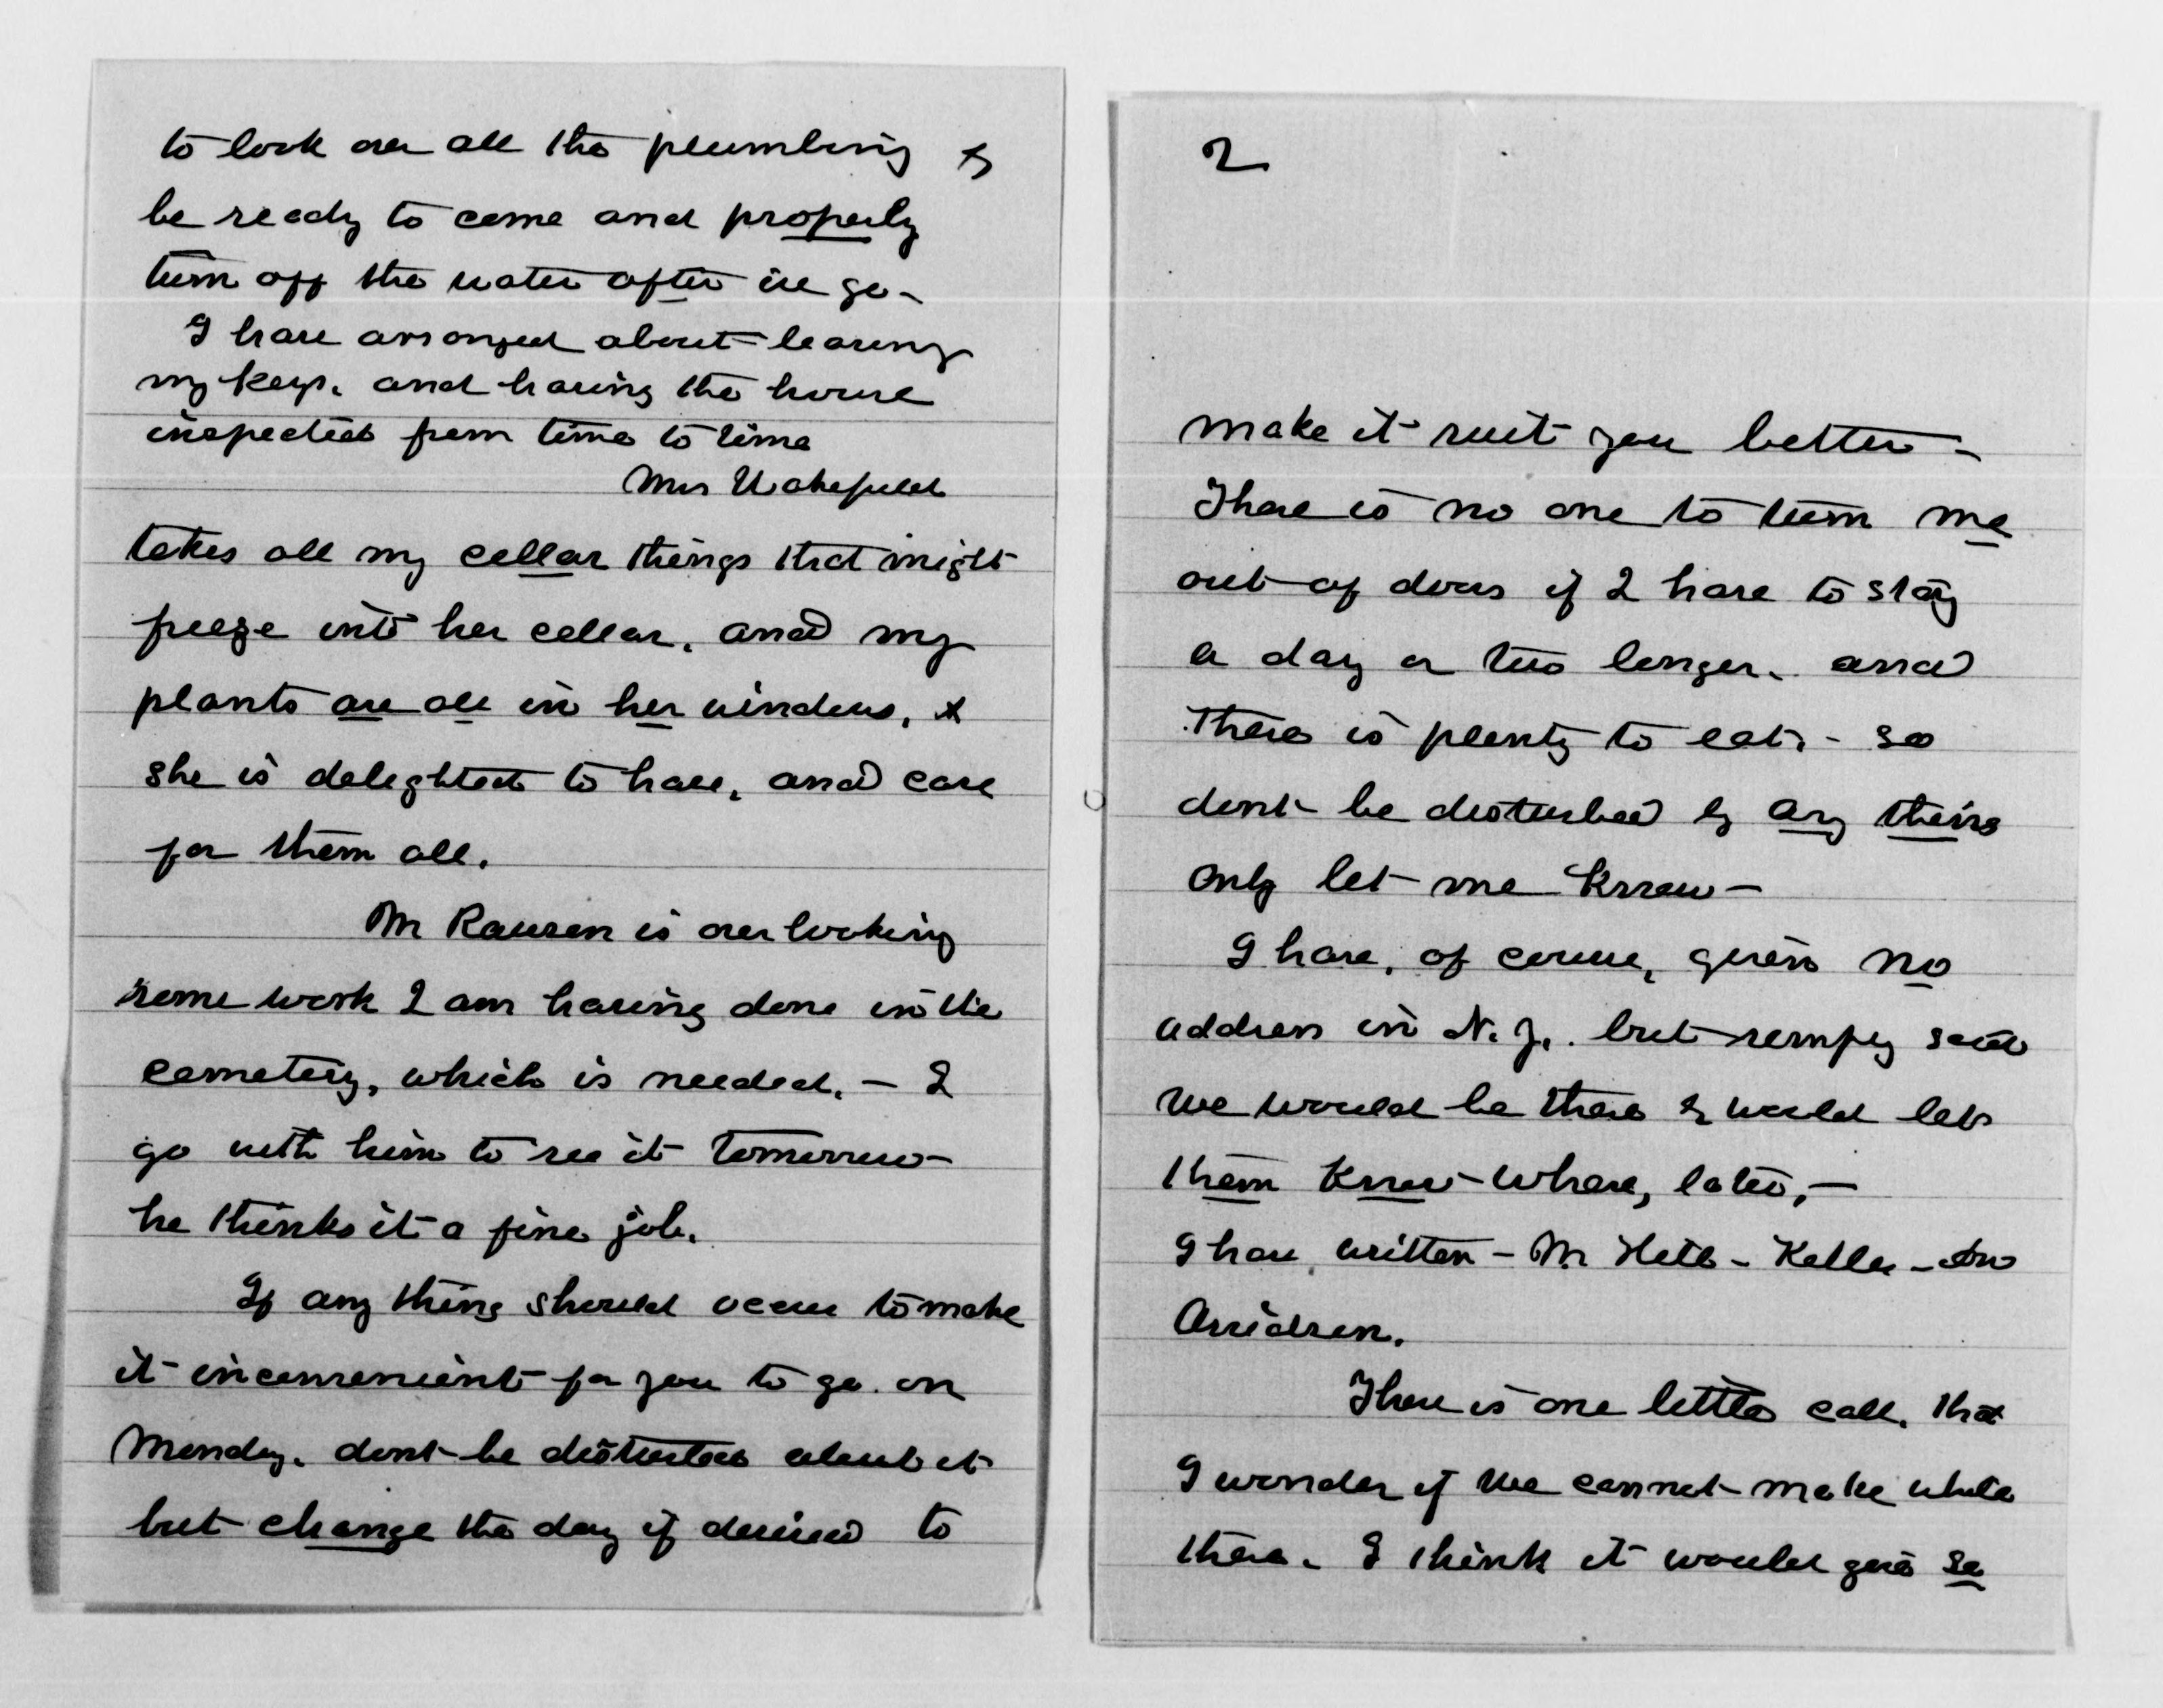 to look over all the plumbing &
be ready to come and properly
turn off the water after we go -
I have arranged about leaving
my keys. and having the house
inspected from time to time
Mrs Wakefield
takes all my cellar things that might
freeze into her cellar. and my
plants are all in her windows, &
she is delighted to have, and care
for them all.
Mr Rawson is overlooking
some work I am having done in the
cemetery, which is needed. - I
go with him to see it tomorrow -
he thinks it a fine job.
If any thing should occur to make
it inconvenient for you to go. on
Monday. dont be disturbed about it
but change the day if desired to
2
make it suit you better -
There is no one to turn me
out of doors if I have to stay
a day or two longer. and
there is plenty to eat. - so
dont be disturbed by any thing
only let me know -
I have, of course, given no
address in N. J.. but simply said
we would be there & would let
them know where, later, -
I have written - Mr Hebb - Keller -
Davidson.
There is one little call. that
I wonder if we cannot make while
there. I think it would give so